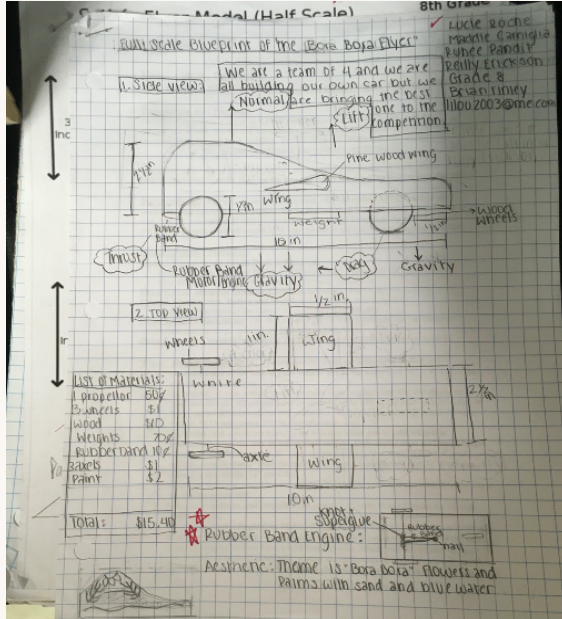 Model (Half Scale)
8th Grade
Full Scale Blueprint of the "Bora Bora Flyer"
Lucie Roche
Maddie Carniglia
Runee Pandit
Reilly Erickson
Grade 8
Brian Timey
lilou2003@me.com
1. Side view
We are a team of 4 and we are
all building our own car but we
are bringing the best
one to the
competition
Normal
Lift
3
Inc
2 1/2 in
Pine wood wing
wing
weight
1/2 in
Wood
wheels
Rubber
Band
10 in
Thrust
Rubber Band
Motor/Engine
Gravity
Drag
Gravity
2. Top View
1/2 in.
wheels
1in.
wing
white
2 1/2 in
List of Materials:
1 propellor 50¢
3 wheels $1
wood $10
Weights 70¢
Rubber band 10¢
3 axels $1
Paint $2
Total: $15.40
axle
wing
10in
knot +
superglue
Rubber Band Engine:
Rubber
Band
nail
Aesthetic: Theme is "Bora Bora" flowers and
Palms with sand and blue water